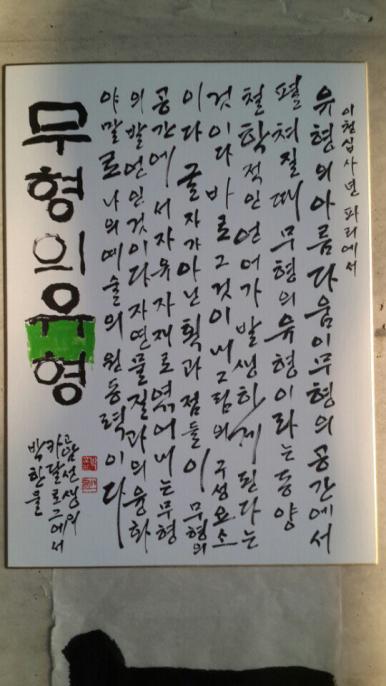 이천십사년 파리에서
유형의아름다움이무형의공간에서
펼쳐질때 무형의유형이라는동양
철학적인언어가발생하게된다는
것이다 바로그것이내그림의구성요소
이다 글자가아닌획과점들이무형의
공간에서자유자재로엮어내는무형
의발언인것이다자연물질과의융화
야말로나의예술의원동력이다
무형의유형
고암선생의
카달로그에서